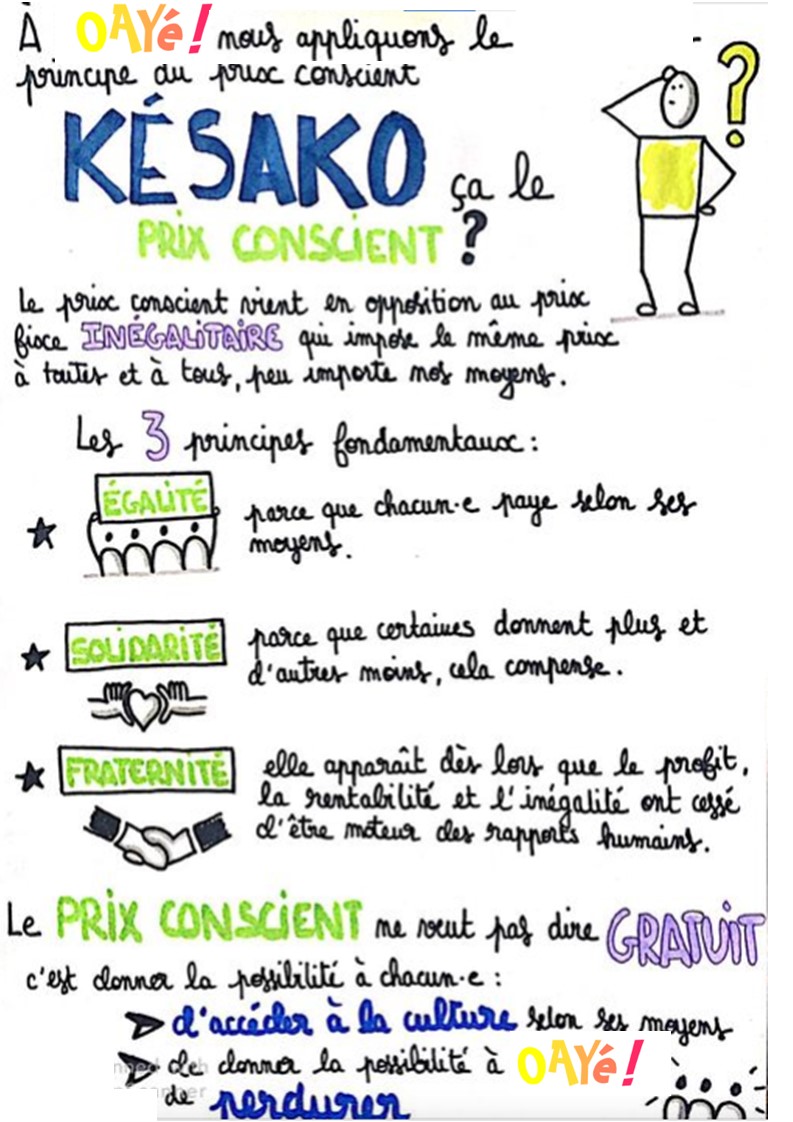 À OAYé! nous appliquons le
principe du prix conscient
KÉSAKO ça le
PRIX CONSCIENT ?
Le prix conscient vient en opposition au prix
fixe INÉGALITAIRE qui impose le même prix
à toutes et à tous, peu importe nos moyens.
Les 3 principes fondamentaux :
ÉGALITÉ parce que chacun·e paye selon ses
moyens.
SOLIDARITÉ parce que certaines donnent plus et
d'autres moins, cela compense.
FRATERNITÉ elle apparaît dès lors que le profit,
la rentabilité et l'inégalité ont cessé
d'être moteur des rapports humains.
Le PRIX CONSCIENT ne veut pas dire GRATUIT
c'est donner la possibilité à chacun·e :
d'accéder à la culture selon ses moyens
de donner la possibilité à OAYé!
de perdurer